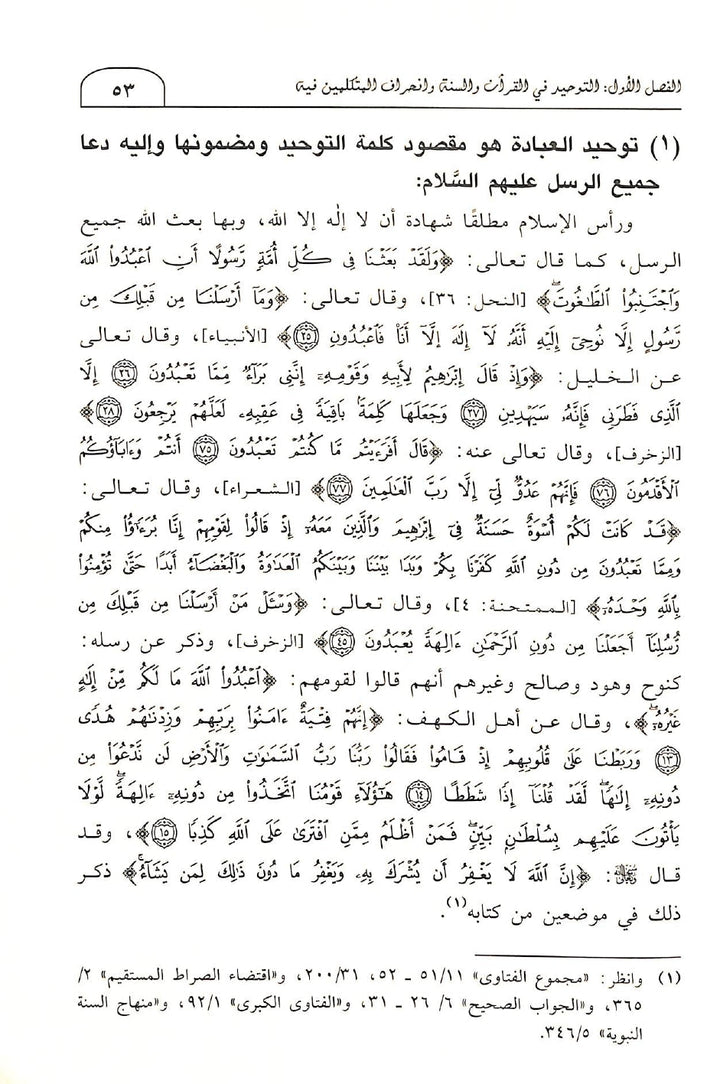 الفصل الأول: التوحيد في القرآن والسنة وانحراف المتكلمين فيه
٥٣
(١) توحيد العبادة هو مقصود كلمة التوحيد ومضمونها وإليه دعا
جميع الرسل عليهم السَّلام:
ورأس الإسلام مطلقًا شهادة أن لا إلٰه إلا الله، وبها بعث الله جميع
الرسل، كما قال تعالى: ﴿وَلَقَدْ بَعَثْنَا فِي كُلِّ أُمَّةٍ رَّسُولًا أَنِ اعْبُدُوا اللَّهَ
وَاجْتَنِبُوا الطَّاغُوتَ﴾ [النحل: ٣٦]، وقال تعالى: ﴿وَمَا أَرْسَلْنَا مِن قَبْلِكَ مِن
رَّسُولٍ إِلَّا نُوحِي إِلَيْهِ أَنَّهُ لَا إِلَهَ إِلَّا أَنَا فَاعْبُدُونِ ٢٥﴾ [الأنبياء]، وقال تعالى
عن الخليل: ﴿وَإِذْ قَالَ إِبْرَاهِيمُ لِأَبِيهِ وَقَوْمِهِ إِنَّنِي بَرَاءٌ مِّمَّا تَعْبُدُونَ ٢٦ إِلَّا
الَّذِي فَطَرَنِي فَإِنَّهُ سَيَهْدِينِ ٢٧ وَجَعَلَهَا كَلِمَةً بَاقِيَةً فِي عَقِبِهِ لَعَلَّهُمْ يَرْجِعُونَ ٢٨﴾
[الزخرف]، وقال تعالى عنه: ﴿قَالَ أَفَرَءَيْتُم مَّا كُنتُمْ تَعْبُدُونَ ٧٥ أَنتُمْ وَءَابَاؤُكُمُ
الْأَقْدَمُونَ ٧٦ فَإِنَّهُمْ عَدُوٌّ لِّي إِلَّا رَبَّ الْعَالَمِينَ ٧٧﴾ [الشعراء]، وقال تعالى:
﴿قَدْ كَانَتْ لَكُمْ أُسْوَةٌ حَسَنَةٌ فِي إِبْرَاهِيمَ وَالَّذِينَ مَعَهُ إِذْ قَالُوا لِقَوْمِهِمْ إِنَّا بُرَءَاؤُا مِنكُمْ
وَمِمَّا تَعْبُدُونَ مِن دُونِ اللَّهِ كَفَرْنَا بِكُمْ وَبَدَا بَيْنَنَا وَبَيْنَكُمُ الْعَدَاوَةُ وَالْبَغْضَاءُ أَبَدًا حَتَّى تُؤْمِنُوا
بِاللَّهِ وَحْدَهُ﴾ [الممتحنة: ٤]، وقال تعالى: ﴿وَسْئَلْ مَنْ أَرْسَلْنَا مِن قَبْلِكَ مِن
رُّسُلِنَا أَجَعَلْنَا مِن دُونِ الرَّحْمَنِ ءَالِهَةً يُعْبَدُونَ ٤٥﴾ [الزخرف]، وذكر عن رسله:
كنوح وهود وصالح وغيرهم أنهم قالوا لقومهم: ﴿اعْبُدُوا اللَّهَ مَا لَكُم مِّنْ إِلَهٍ
غَيْرُهُ﴾، وقال عن أهل الكهف: ﴿إِنَّهُمْ فِتْيَةٌ ءَامَنُوا بِرَبِّهِمْ وَزِدْنَاهُمْ هُدًى
١٣ وَرَبَطْنَا عَلَى قُلُوبِهِمْ إِذْ قَامُوا فَقَالُوا رَبُّنَا رَبُّ السَّمَاوَاتِ وَالْأَرْضِ لَن نَّدْعُوَا مِن
دُونِهِ إِلَهًا لَّقَدْ قُلْنَا إِذًا شَطَطًا ١٤ هَؤُلَاءِ قَوْمُنَا اتَّخَذُوا مِن دُونِهِ ءَالِهَةً لَّوْلَا
يَأْتُونَ عَلَيْهِم بِسُلْطَانٍ بَيِّنٍ فَمَنْ أَظْلَمُ مِمَّنِ افْتَرَى عَلَى اللَّهِ كَذِبًا ١٥﴾، وقد
قال : ﴿إِنَّ اللَّهَ لَا يَغْفِرُ أَن يُشْرَكَ بِهِ وَيَغْفِرُ مَا دُونَ ذَلِكَ لِمَن يَشَاءُ﴾ ذكر
ذلك في موضعين من كتابه(١).
(١) وانظر: «مجموع الفتاوى» ٥١/١١ ـ ٥٢، ٢٠٠/٣١، و«اقتضاء الصراط المستقيم» ٢/
٣٦٥، و«الجواب الصحيح» ٦/ ٢٦ ـ ٣١، و«الفتاوى الكبرى» ٩٢/١، و«منهاج السنة
النبوية» ٣٤٦/٥.